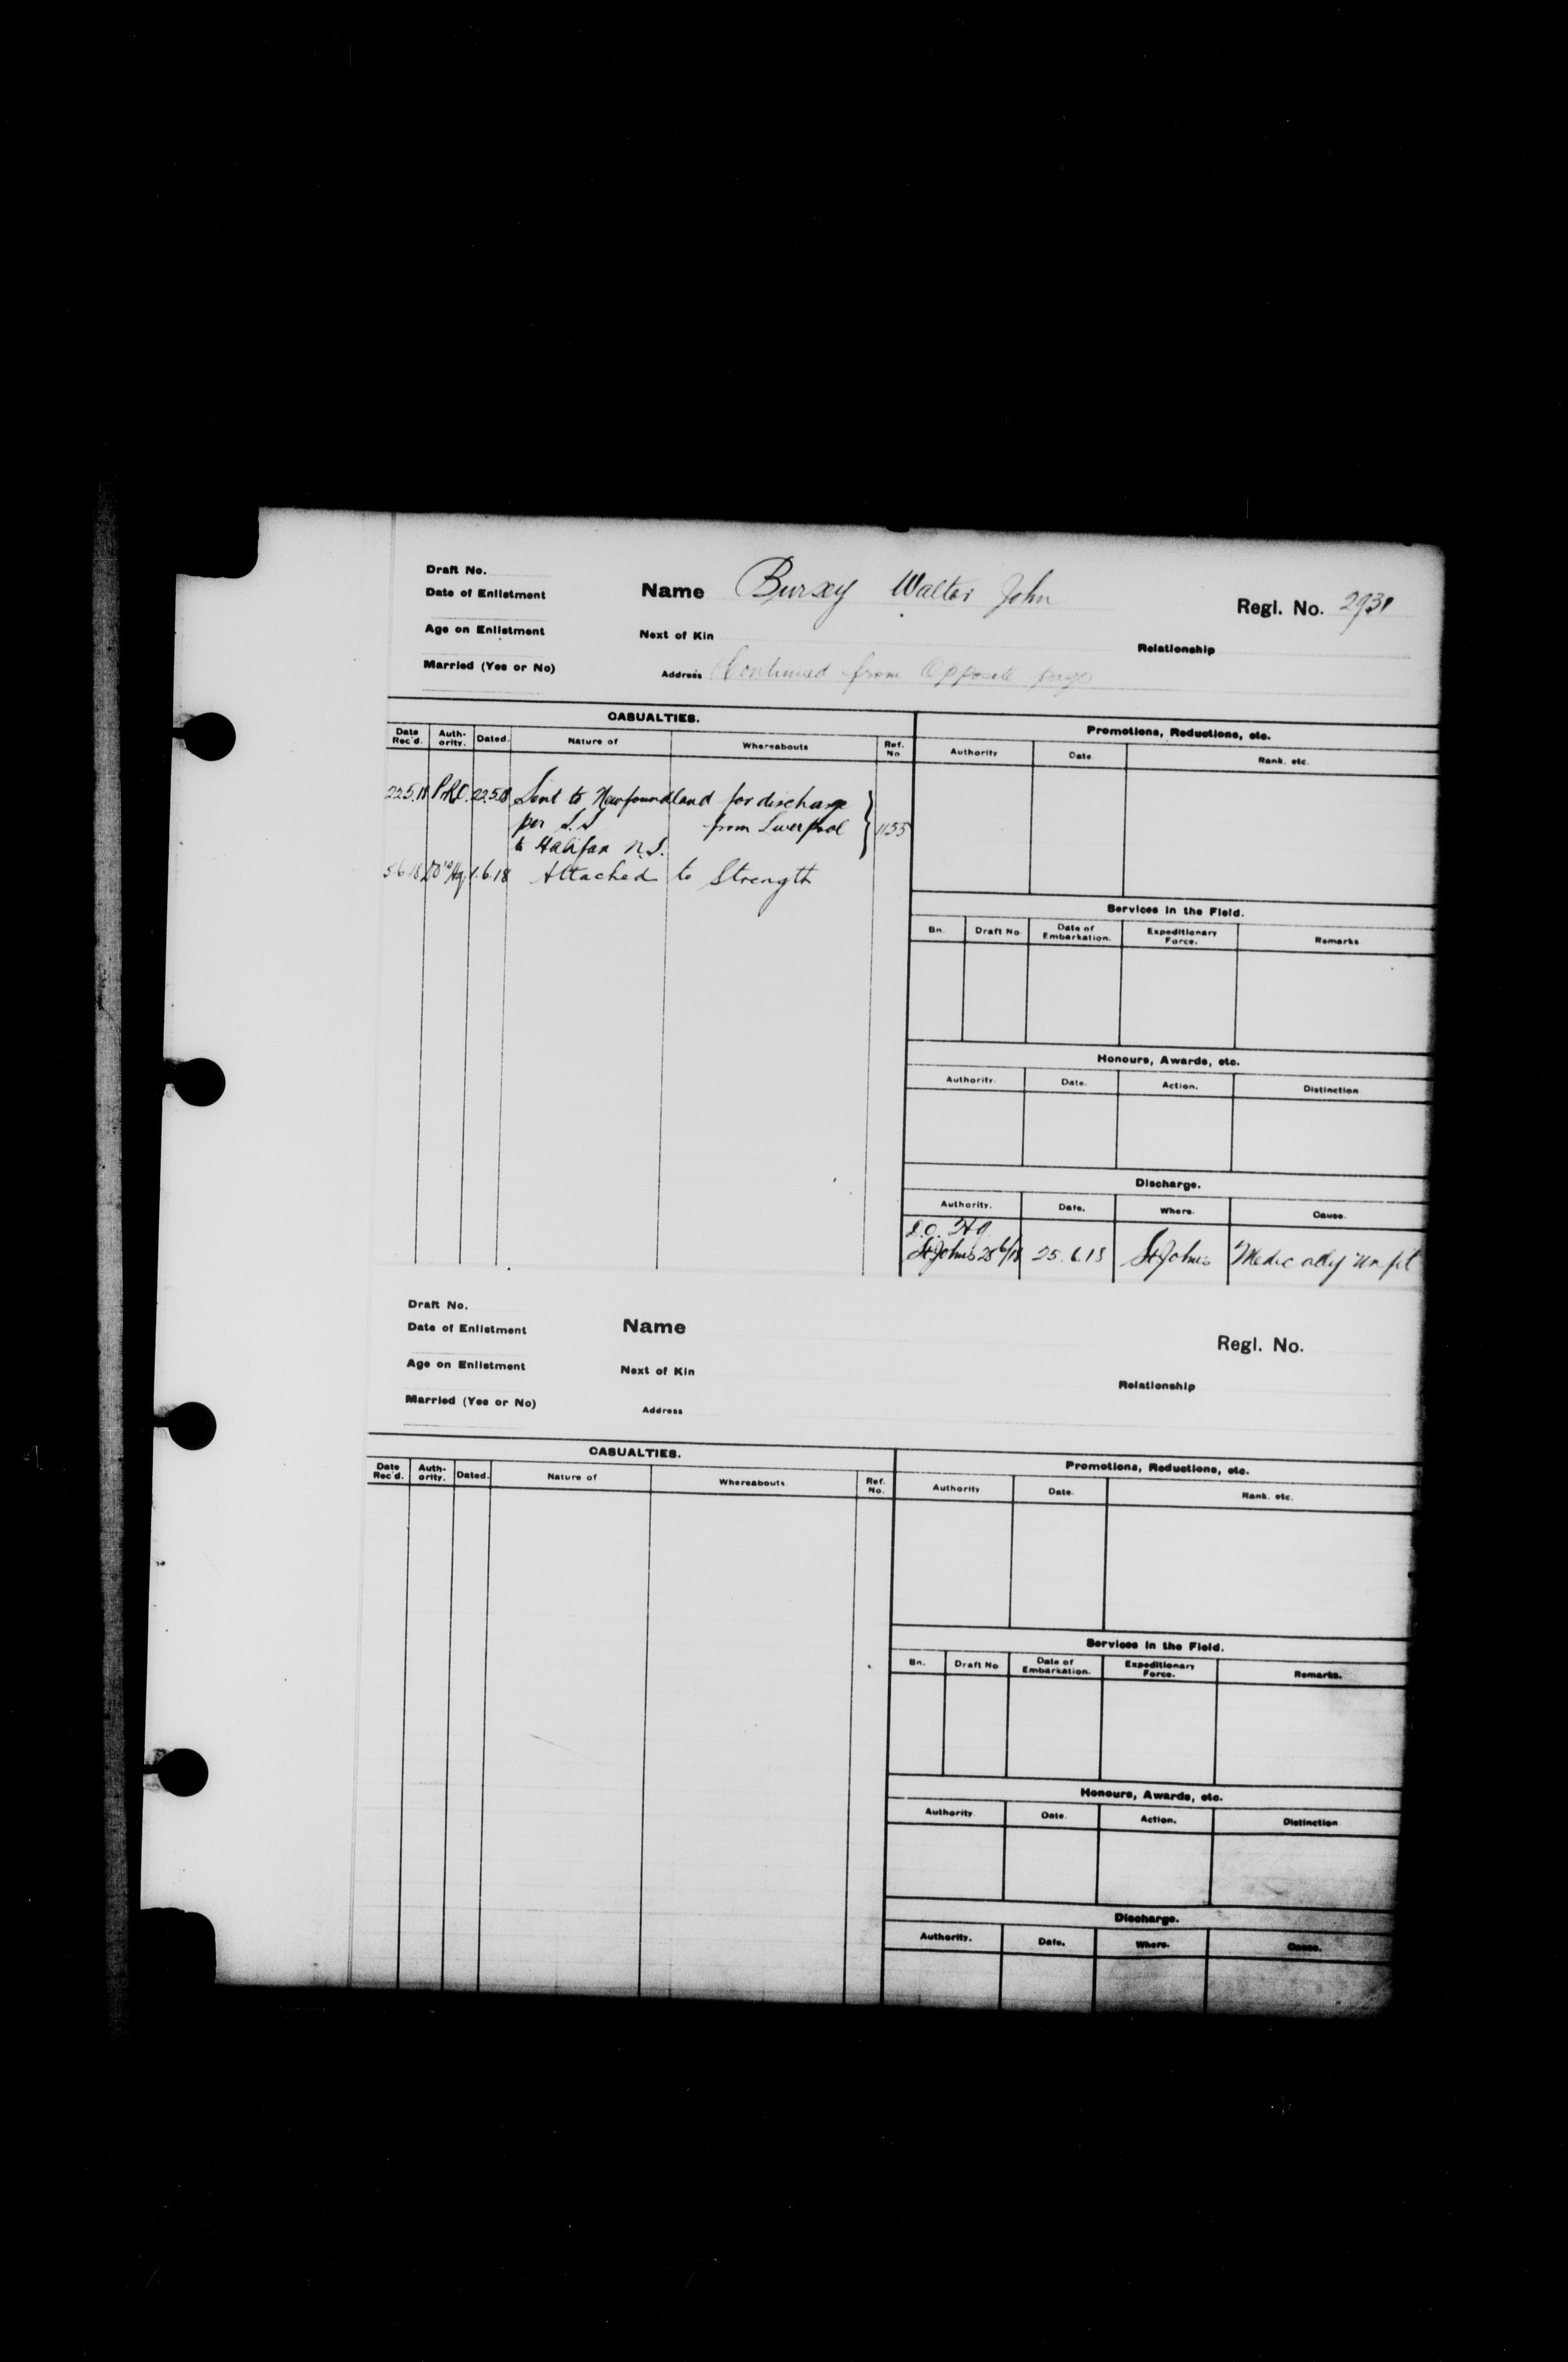 Draft No.
Date of Enlistment
Name Bursey Walter John
Regl. No. 2931
Age on Enlistment
Next of Kin
Relationship
Married (Yes or No)
Address Continued from Opposite page
CASUALTIES.
Date Rec'd. Auth-ority. Dated. Nature of Whereabouts Ref. No
22.5.18 P.R.O. 22.5.18 Sent to Newfoundland for discharge
per S.S from Liverpool 1155
to Halifax N.S.
5.6.18 1.6.18 Attached to Strength
Promotions, Reductions, etc.
Authority Date. Rank. etc.
Services in the Field.
Bn. Draft No Date of Embarkation. Expeditionary Force. Remarks
Honours, Awards, etc.
Authority. Date. Action. Distinction
Discharge.
Authority. Date. Where. Cause.
D.O. Hq
St Johns 25 6/18 25.6.18 St Johns Medically Unfit
Draft No.
Date of Enlistment
Name
Regl. No.
Age on Enlistment
Next of Kin
Relationship
Married (Yes or No)
Address
CASUALTIES.
Date Rec'd. Auth-ority. Dated. Nature of Whereabouts. Ref. No.
Promotions, Reductions, etc.
Authority Date. Rank. etc.
Services in the Field.
Bn. Draft No Date of Embarkation. Expeditionary Force. Remarks.
Honours, Awards, etc.
Authority. Date. Action. Distinction
Discharge.
Authority. Date. Where. Cause.